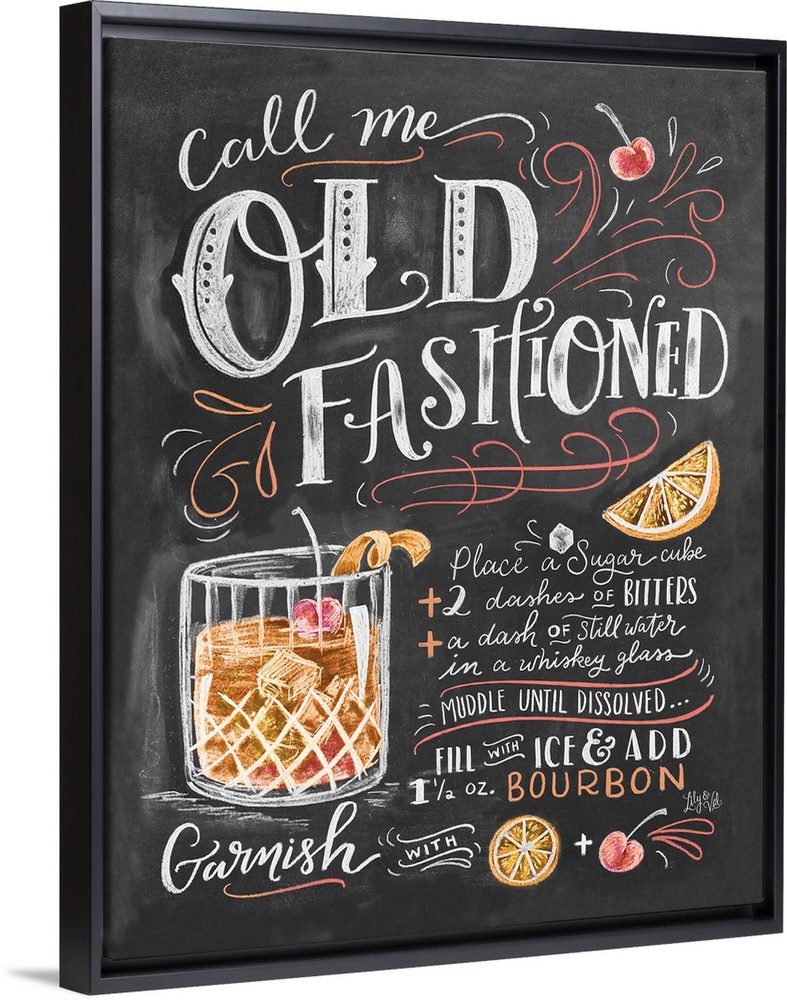 Call me
OLD
FASHIONED
Place a Sugar cube
+2 dashes OF BITTERS
+ a dash OF Still water
in a whiskey glass
MUDDLE UNTIL DISSOLVED...
FILL WITH ICE & ADD
1 1/2 OZ. BOURBON
Lily & Val
Garnish WITH +